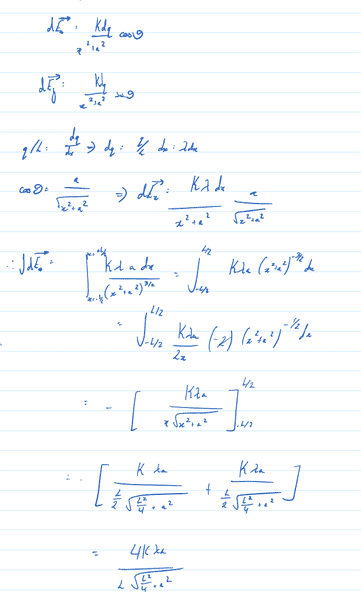 dE⃗ₓ : Kdq / x²+a² cosθ
dE⃗y : Kdq / x²+a² sinθ
q/L : dq/dx ⇒ dq : q/L dx : λdx
cosθ = a / √x²+a² ⇒ dE⃗ₓ : Kλ dx / x²+a² a / √x²+a²
∴ ∫dE⃗ₓ = ∫_{x=-L/2}^{x=+L/2} Kλ a dx / (x²+a²)^{3/2} = ∫_{-L/2}^{L/2} Kλa (x²+a²)^{-3/2} dx
= ∫_{-L/2}^{L/2} Kλa / 2x (-2) (x²+a²)^{-1/2} dx
= - [ Kλa / x √x²+a² ]_{-L/2}^{L/2}
: - [ Kλa / L/2 √L²/4 + a² + Kλa / L/2 √L²/4 + a² ]
= 4Kλa / L √L²/4 + a²